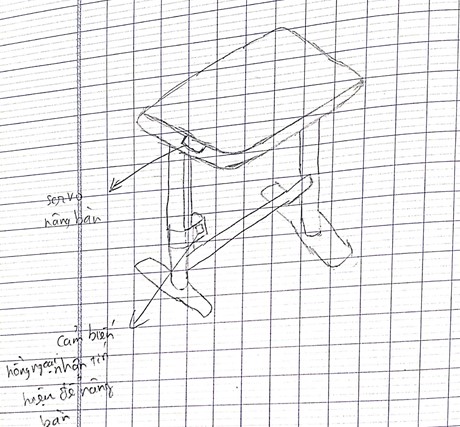 servo
nâng bàn
cảm biến
hồng ngoại nhận tín
hiệu để nâng
bàn